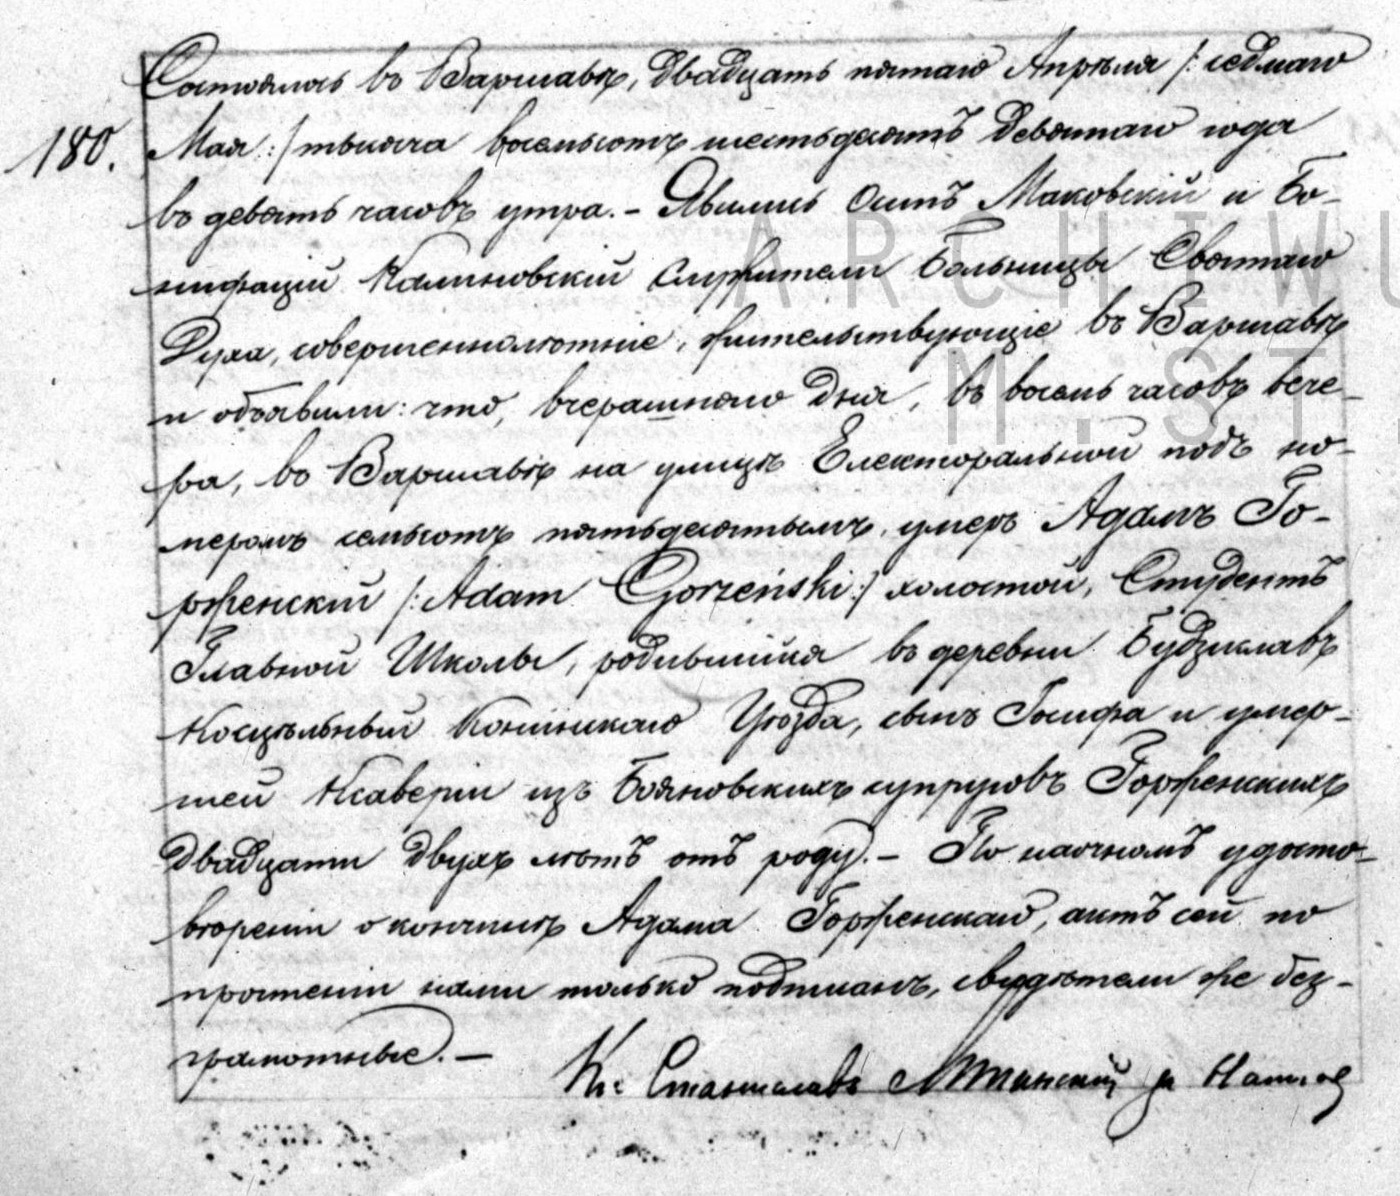 Состоялось въ Варшавѣ, двадцать пятаго Апрѣля /: седмаго
180. Мая :/ тысяча восемьсотъ шестьдесятъ девятаго года
въ девять часовъ утра. – Явились Осипъ Маковскій и Бо-
нифацій Калиновскій служители Больницы Святаго
Духа, совершеннолѣтніе, жительствующіе въ Варшавѣ
и объявили: что, вчерашняго дня, въ восемь часовъ вече-
ра, въ Варшавѣ на улицѣ Електоральной подъ но-
меромъ семьсотъ пятьдесятымъ, умеръ Адамъ Го-
рженскій /: Adam Gorzeński :/ холостой, Студентъ
Главной Школы, родившійся въ деревни Будзиславъ
Косцѣльный Конинскаго Уѣзда, сынъ Іосифа и умер-
шей Ксаверіи изъ Бояновскихъ супруговъ Горженскихъ
двадцати двухъ лѣтъ отъ роду. – По наочномъ удосто-
вѣреніи о кончинѣ Адама Горженскаго, актъ сей по
прочтеніи нами только подписанъ, свидѣтели же без-
грамотные. –
Кс. Станиславъ
ARCHIWU
M.ST.